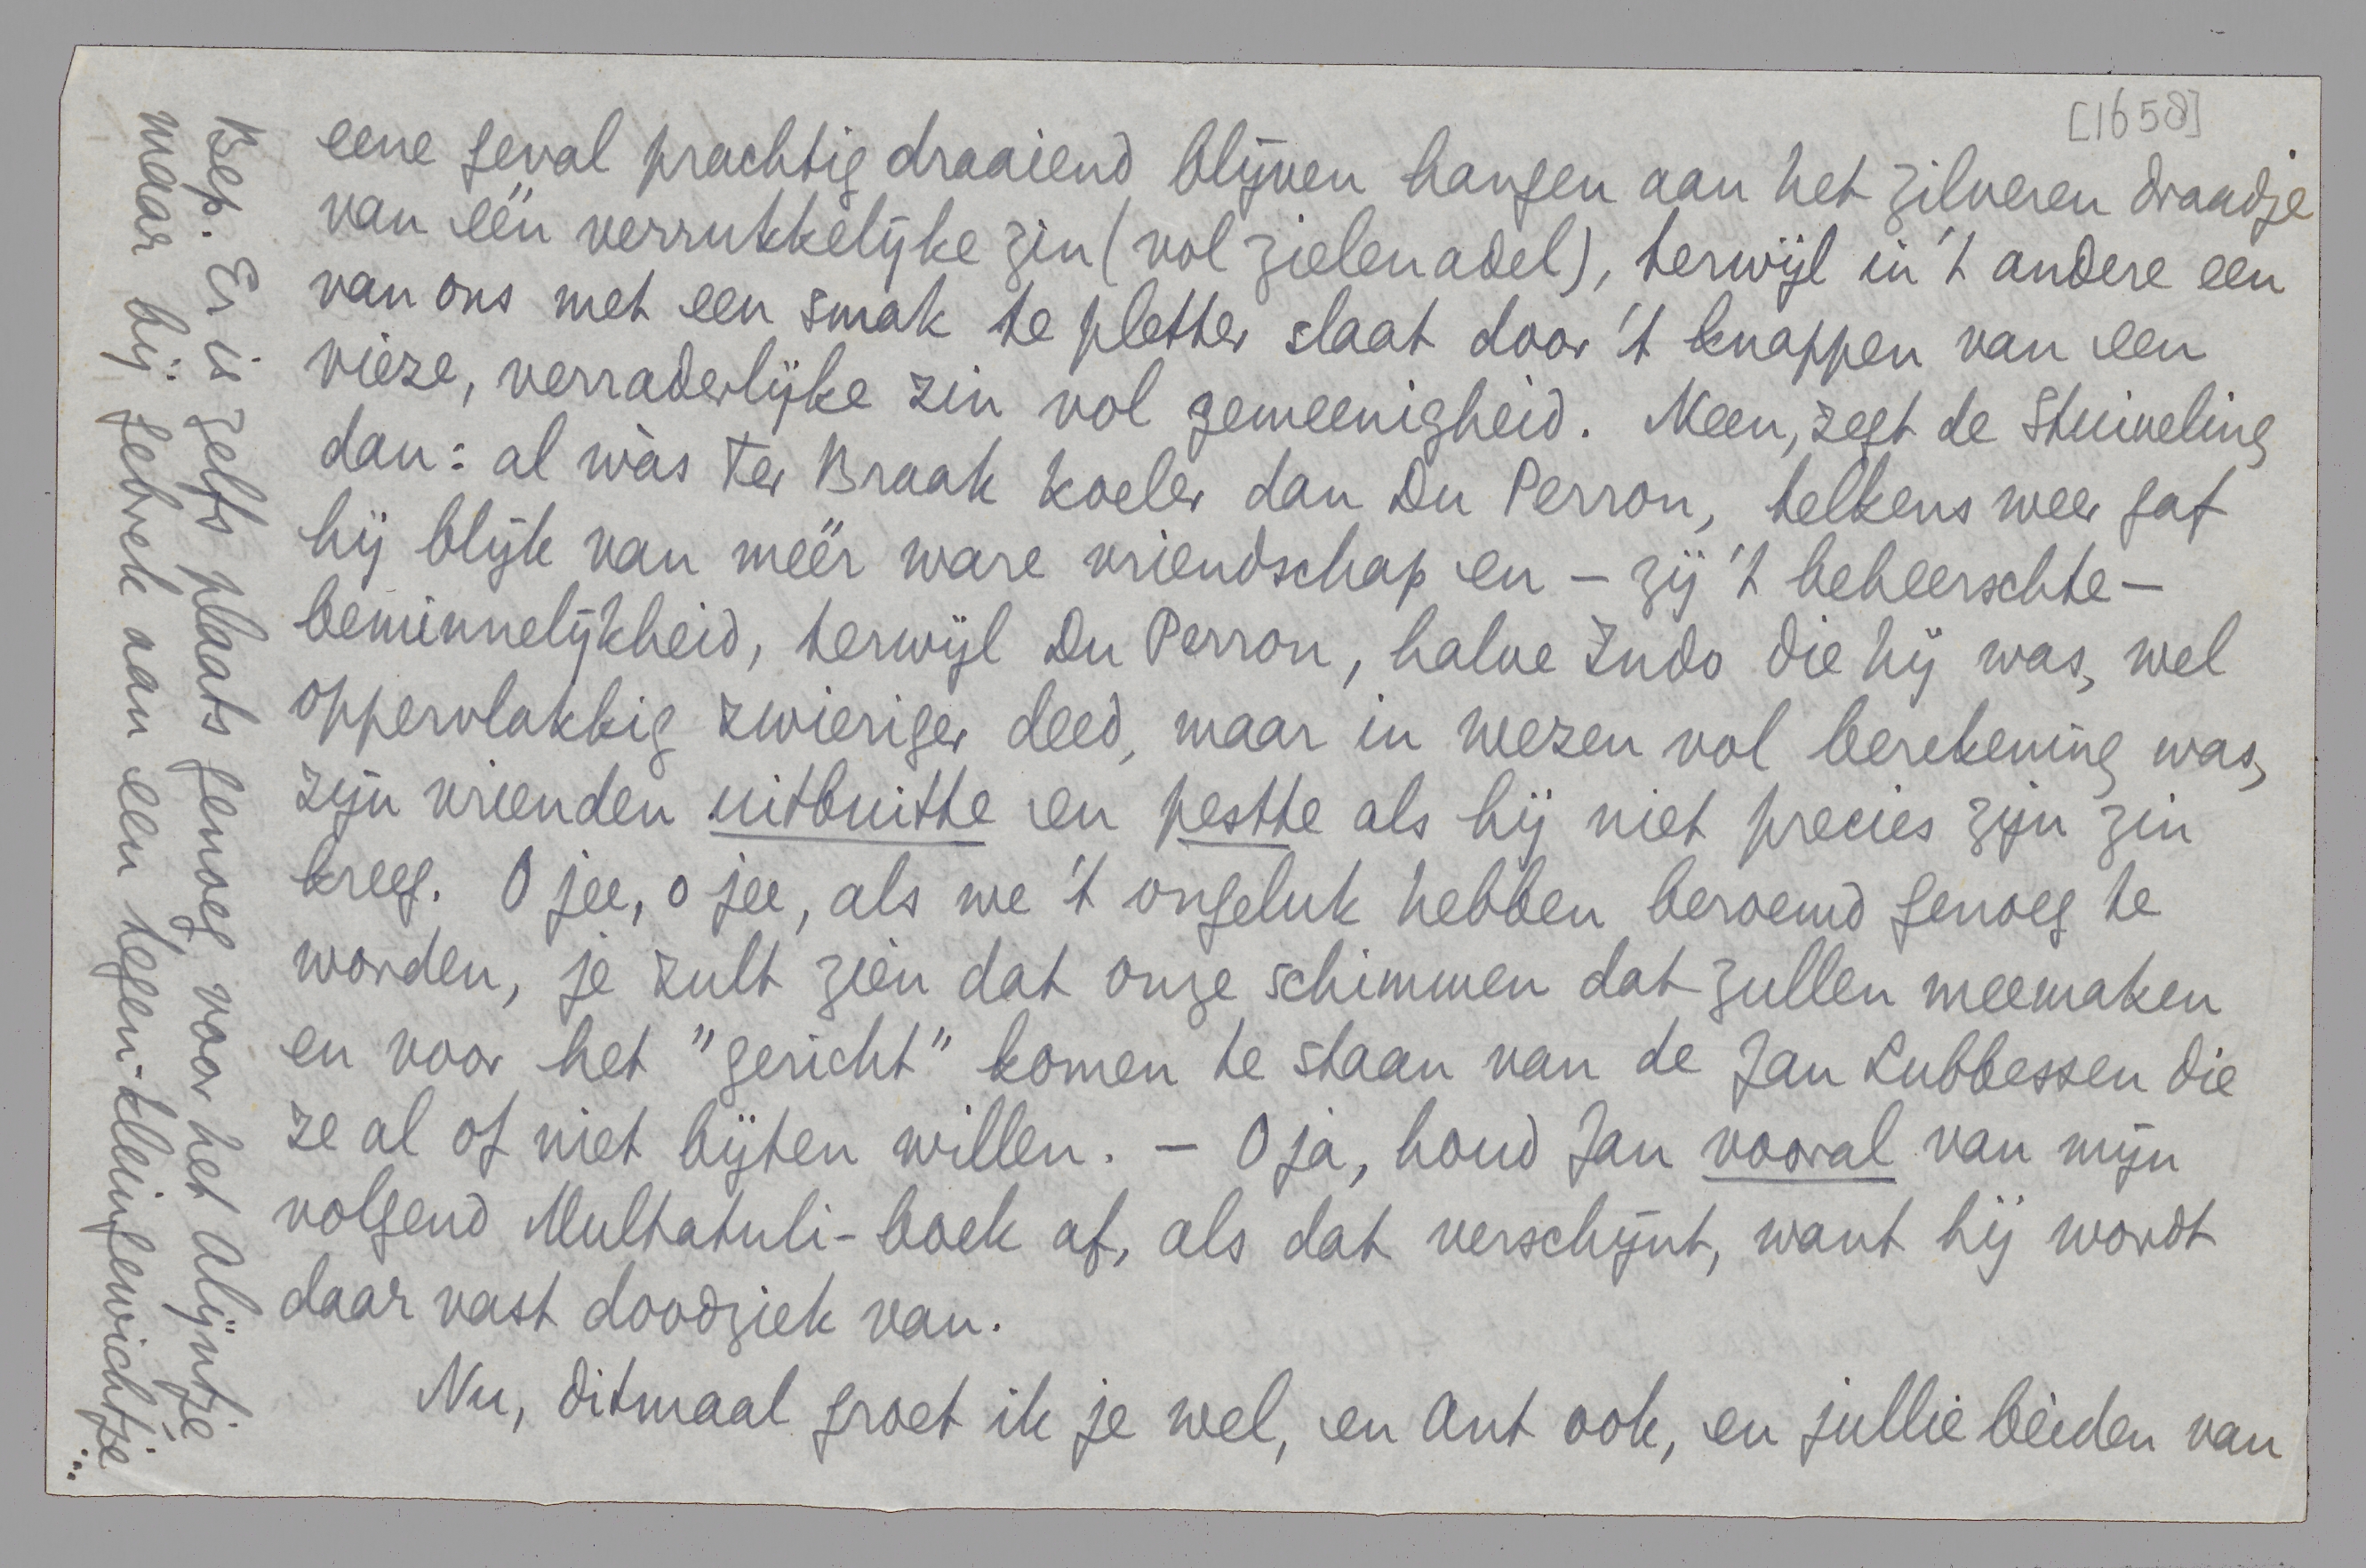 [1658]
eene geval prachtig draaiend blijven hangen aan het zilveren draadje
van één verrukkelijke zin (vol zielenadel), terwijl in 't andere een
van ons met een smak te pletter slaat door 't knappen van een
vieze, verraderlijke zin vol gemeenigheid. Neen, zegt de Stuiveling
dan: al wàs Ter Braak koeler dan Du Perron, telkens weer gaf
hij blijk van méér ware vriendschap en – zij 't beheerschte –
beminnelijkheid, terwijl Du Perron, halve Indo die hij was, wel
oppervlakkig zwieriger deed, maar in wezen vol berekening was,
zijn vrienden uitbuitte en pestte als hij niet precies zijn zin
kreeg. O jee, o jee, als we 't ongeluk hebben beroemd genoeg te
worden, je zult zien dat onze schimmen dat zullen meemaken
en voor het "gericht" komen te staan van de Jan Lubbessen die
ze al of niet bijten willen. – O ja, houd Jan vooral van mijn
volgend Multatuli-boek af, als dat verschijnt, want hij wordt
daar vast doodziek van.
Nu, ditmaal groet ik je wel, en Ant ook, en jullie beiden van
Bep. Er is zelfs plaats genoeg voor het Alijntje
maar bij gebrek aan een tegen-kleingewichtje...